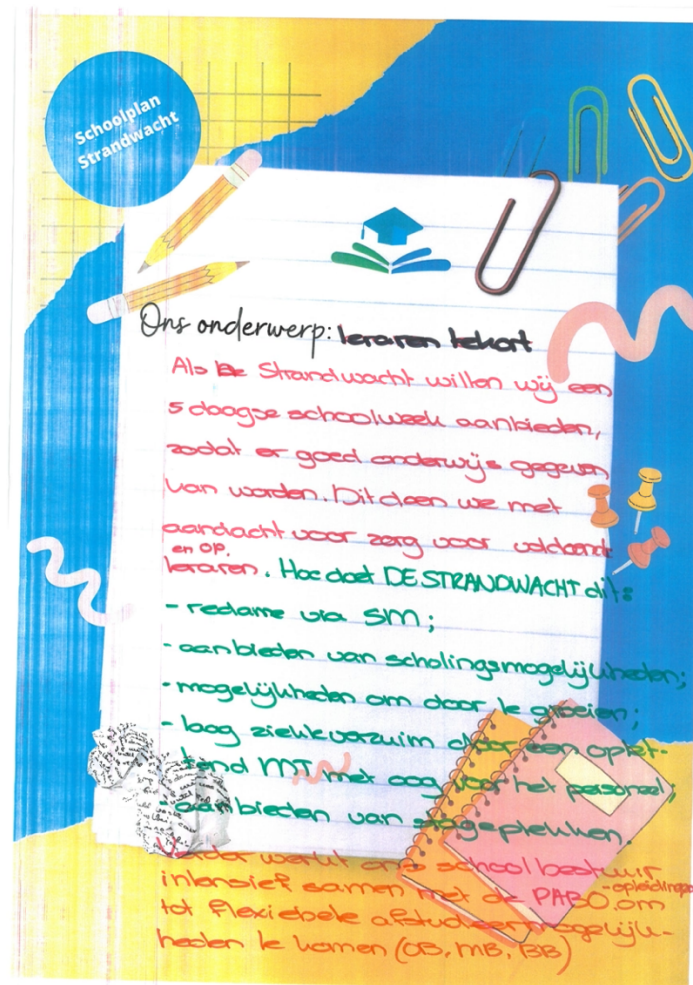 Schoolplan
Strandwacht
Ons onderwerp: leraren tekort
Als Strandwacht willen wij een
5 daagse schoolweek aanbieden,
zodat er goed onderwijs gegeven
kan worden. Dit doen we met
aandacht voor zorg voor voldoende
en OP.
leraren. Hoe doet DE STRANDWACHT dit:
- reclame via SIM;
- aanbieden van scholingsmogelijkheden;
- mogelijkheden om door te groeien;
- laag ziekteverzuim door een oplet-
tend MT met oog voor het personeel;
- aanbieden van stageplekken.
Verder werkt ons schoolbestuur
intensief samen met de PABO-opleidingen om
tot flexiebele afstudeermogelijk-
heden te komen (OB, MB, BB)